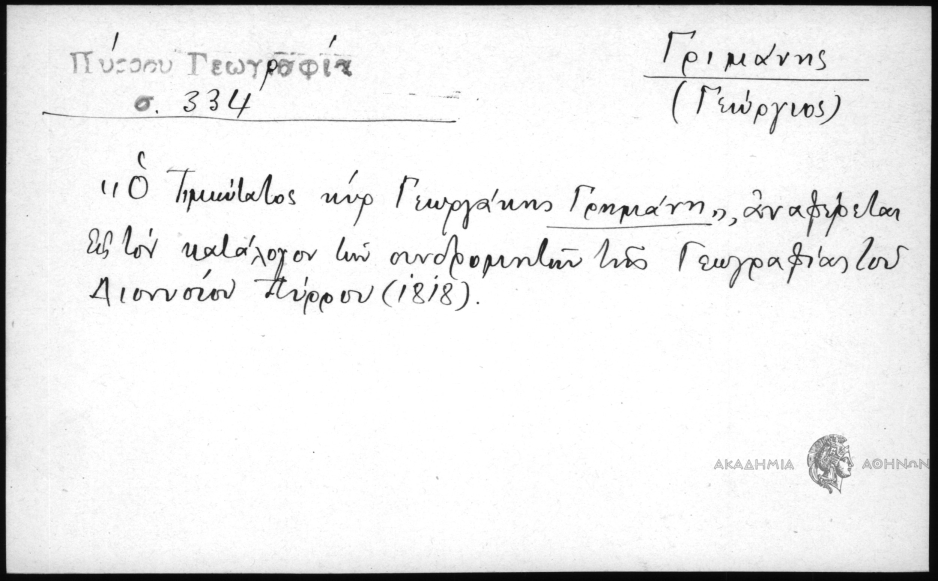 Πύρρου Γεωγραφία
σ. 334
Γριμάνης
(Γεώργιος)
"Ὁ Τιμιώτατος κύρ Γεωργάκης Γρημάνη", ἀναφέρεται
εἰς τόν κατάλογον τῶν συνδρομητῶν τῆς Γεωγραφίας τοῦ
Διονυσίου Πύρρου (1818).
ΑΚΑΔΗΜΙΑ ΑΘΗΝΩΝ